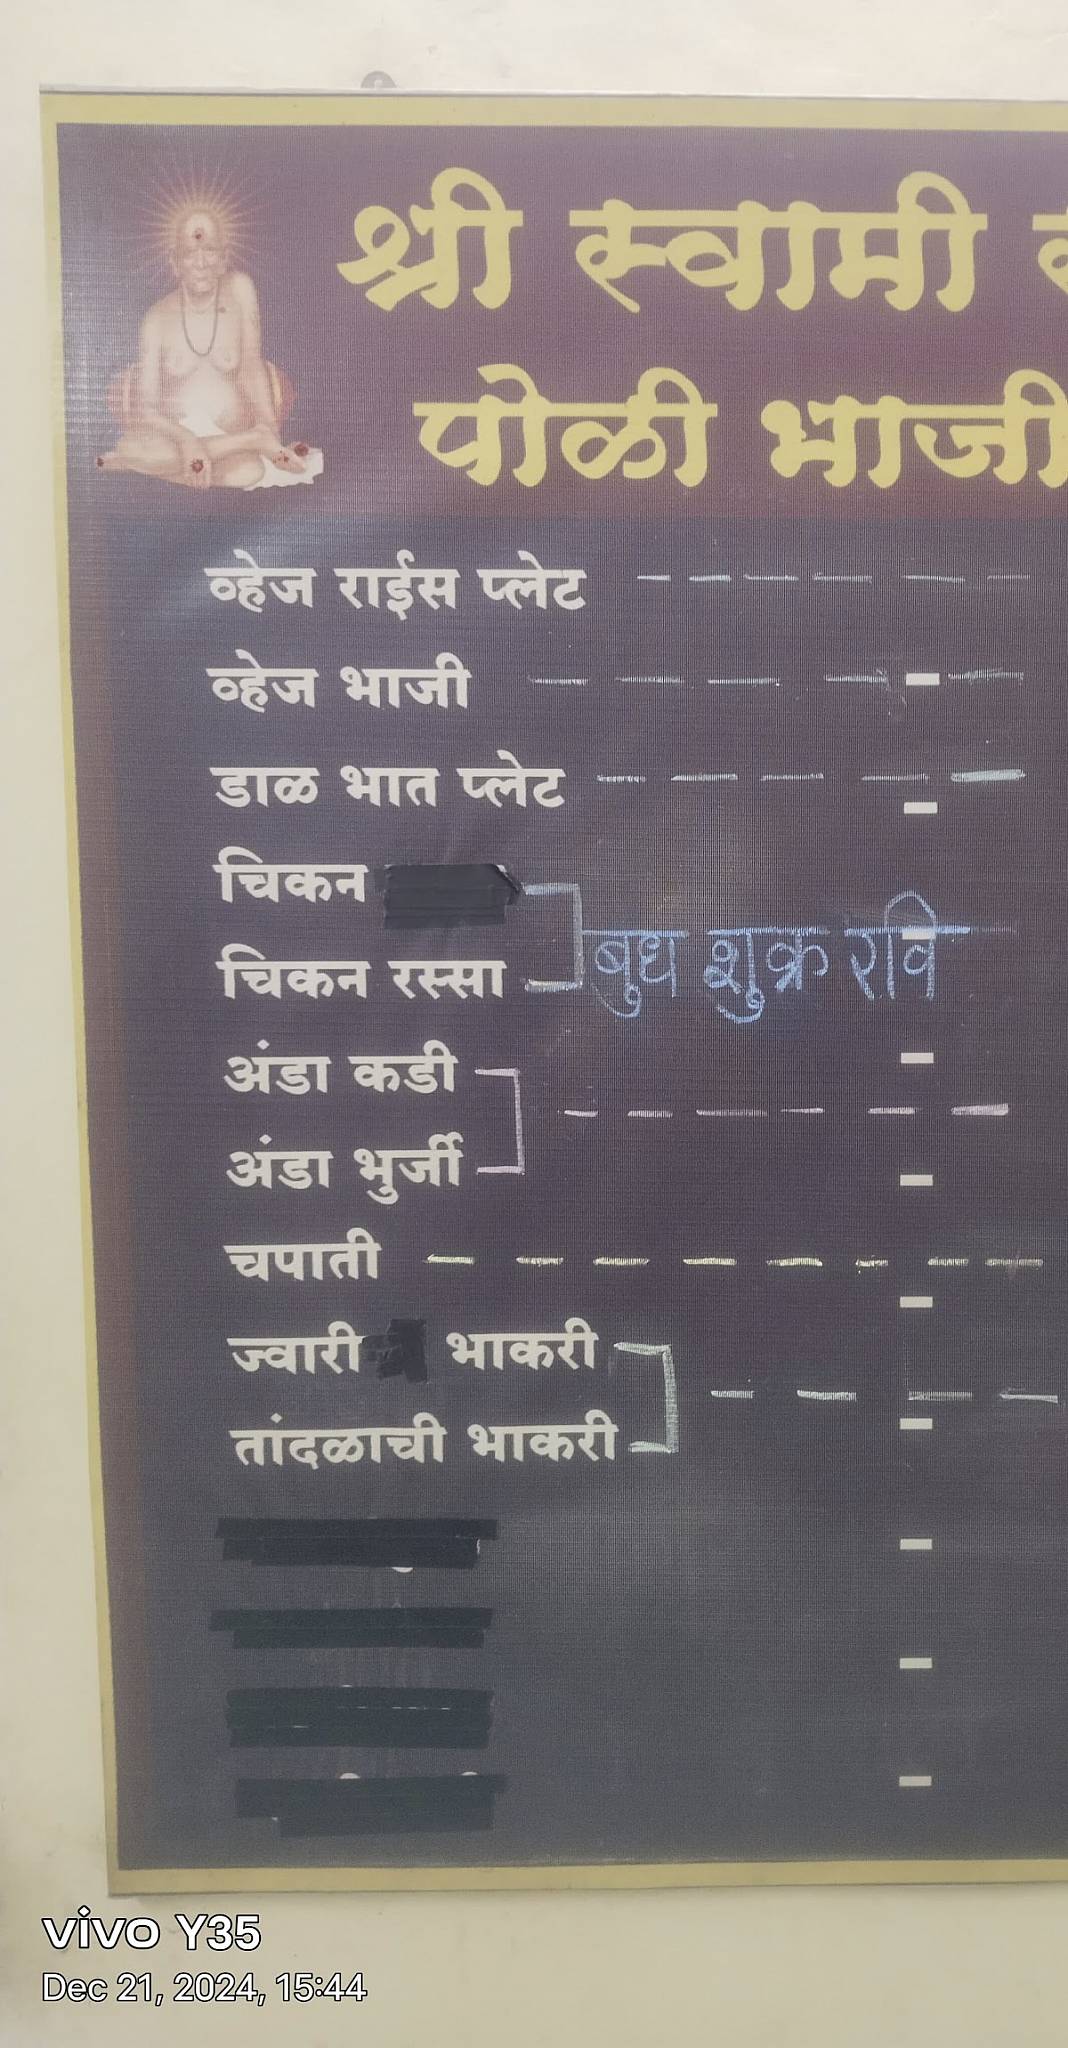 श्री स्वामी
पोळी भाजी
व्हेज राईस प्लेट
व्हेज भाजी
डाळ भात प्लेट
चिकन
चिकन रस्सा
बुध शुक्र रवि
अंडा कडी
अंडा भुर्जी
चपाती
ज्वारी भाकरी
तांदळाची भाकरी
vivo Y35
Dec 21, 2024, 15:44